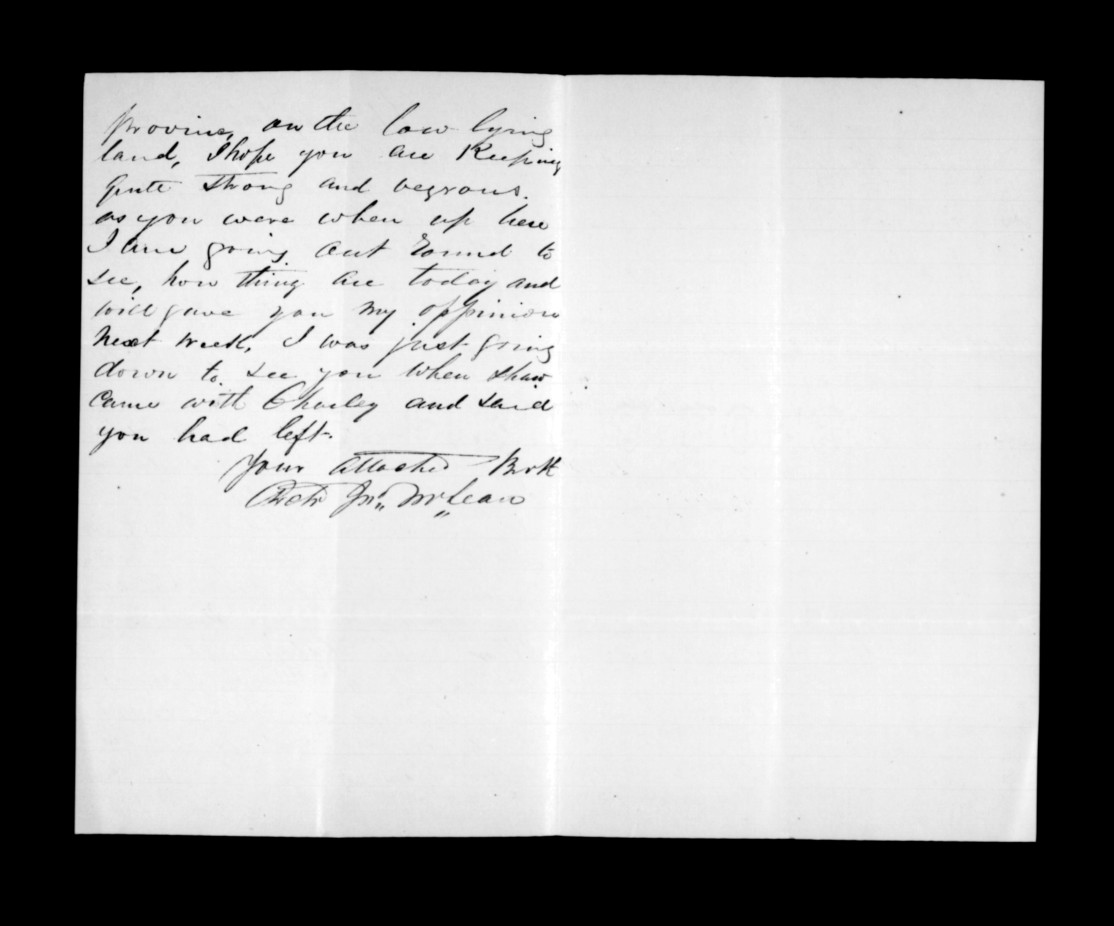 province, on the low lying
land, I hope you are Keeping
quite strong and vegrous.
as you were when up here
I am going out round to
see, how thing are today and
will gave you my oppinion
next week, I was just going
down to see you when Shaw
came with Charley and said
you had left.
Your attached Broth
Archd Jno McLean